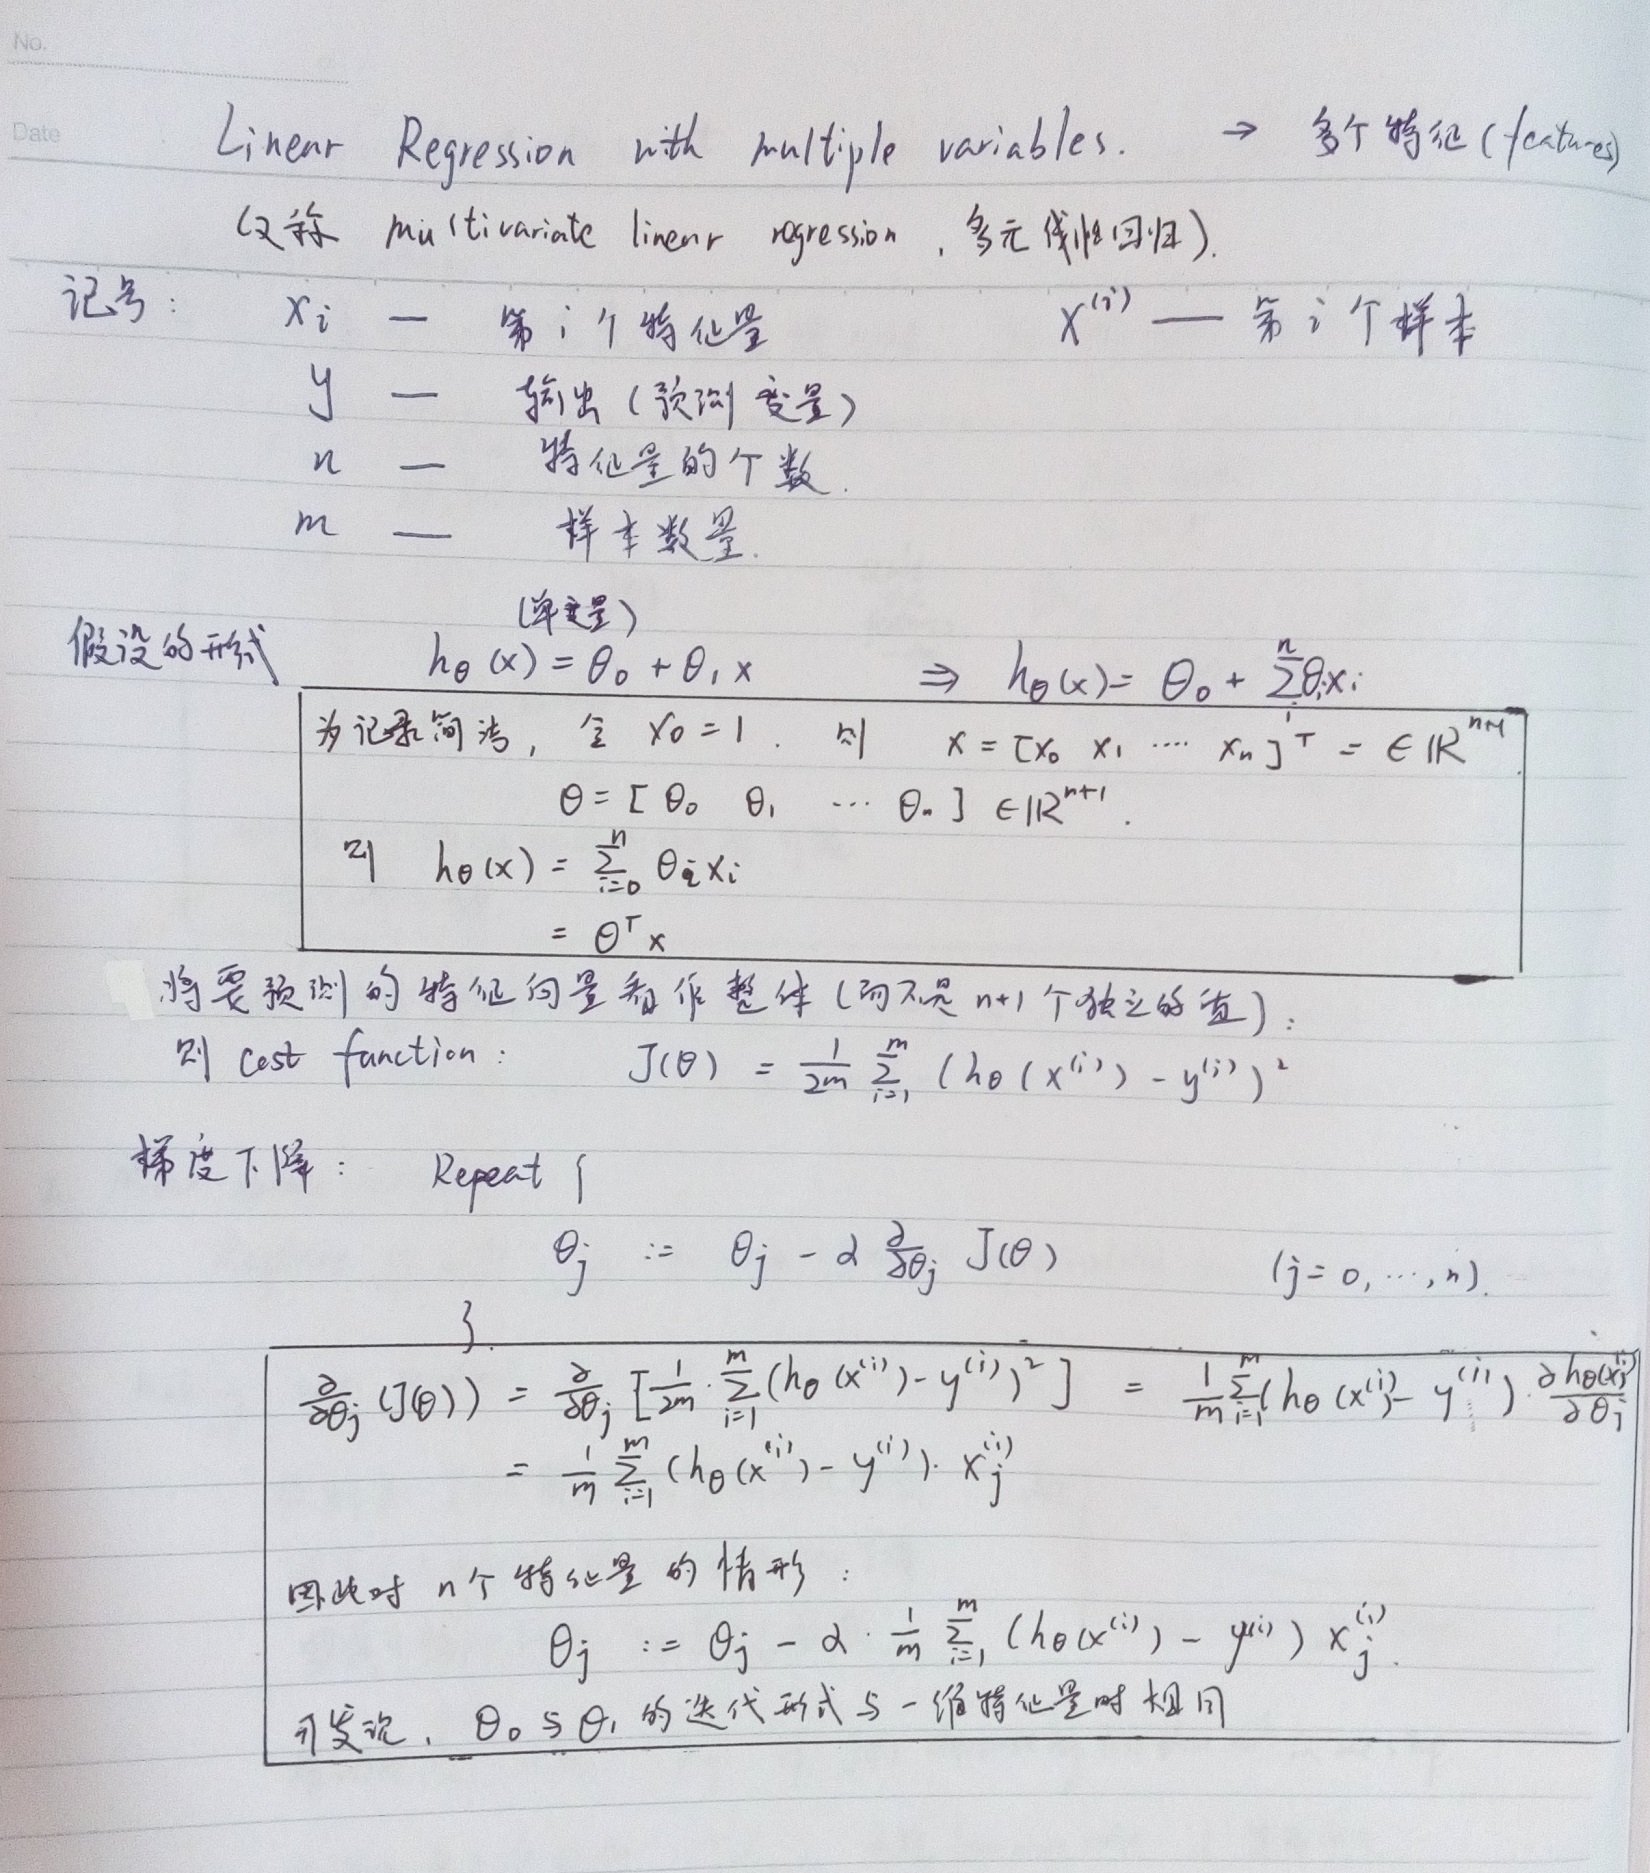 No.
Date
Linear Regression with multiple variables. → 多个特征(features)
(又称 multivariate linear regression,多元线性回归).
记号: xᵢ — 第i个特征量 x⁽ⁱ⁾ — 第i个样本
y — 输出(预测变量)
n — 特征量的个数.
m — 样本数量.
(单变量)
假设的形式 h_θ(x) = θ₀ + θ₁x ⇒ h_θ(x) = θ₀ + Σᵢⁿ θᵢxᵢ
为记录简洁, 令 x₀ = 1. 则 x = [x₀ x₁ ···· xₙ]ᵀ = ∈ ℝⁿ⁺¹.
θ = [θ₀ θ₁ ··· θₙ] ∈ ℝⁿ⁺¹.
则 h_θ(x) = Σᵢ₌₀ⁿ θᵢxᵢ
= θᵀx
将要预测的特征向量看作整体(而不是n+1个独立的值):
则 cost function: J(θ) = 1/2m Σᵢ₌₁ᵐ (h_θ(x⁽ⁱ⁾) - y⁽ⁱ⁾)²
梯度下降: Repeat {
θⱼ := θⱼ - α ∂/∂θⱼ J(θ) (j = 0, ···, n).
}
∂/∂θⱼ (J(θ)) = ∂/∂θⱼ [1/2m · Σᵢ₌₁ᵐ (h_θ(x⁽ⁱ⁾) - y⁽ⁱ⁾)²] = 1/m Σᵢ₌₁ᵐ (h_θ(x⁽ⁱ⁾) - y⁽ⁱ⁾) · ∂h_θ(x⁽ⁱ⁾)/∂θⱼ
= 1/m Σᵢ₌₁ᵐ (h_θ(x⁽ⁱ⁾) - y⁽ⁱ⁾) · xⱼ⁽ⁱ⁾
因此对 n个特征量的情形:
θⱼ := θⱼ - α · 1/m Σᵢ₌₁ᵐ (h_θ(x⁽ⁱ⁾) - y⁽ⁱ⁾) xⱼ⁽ⁱ⁾.
可发现, θ₀与θ₁的迭代形式与一维特征量时相同